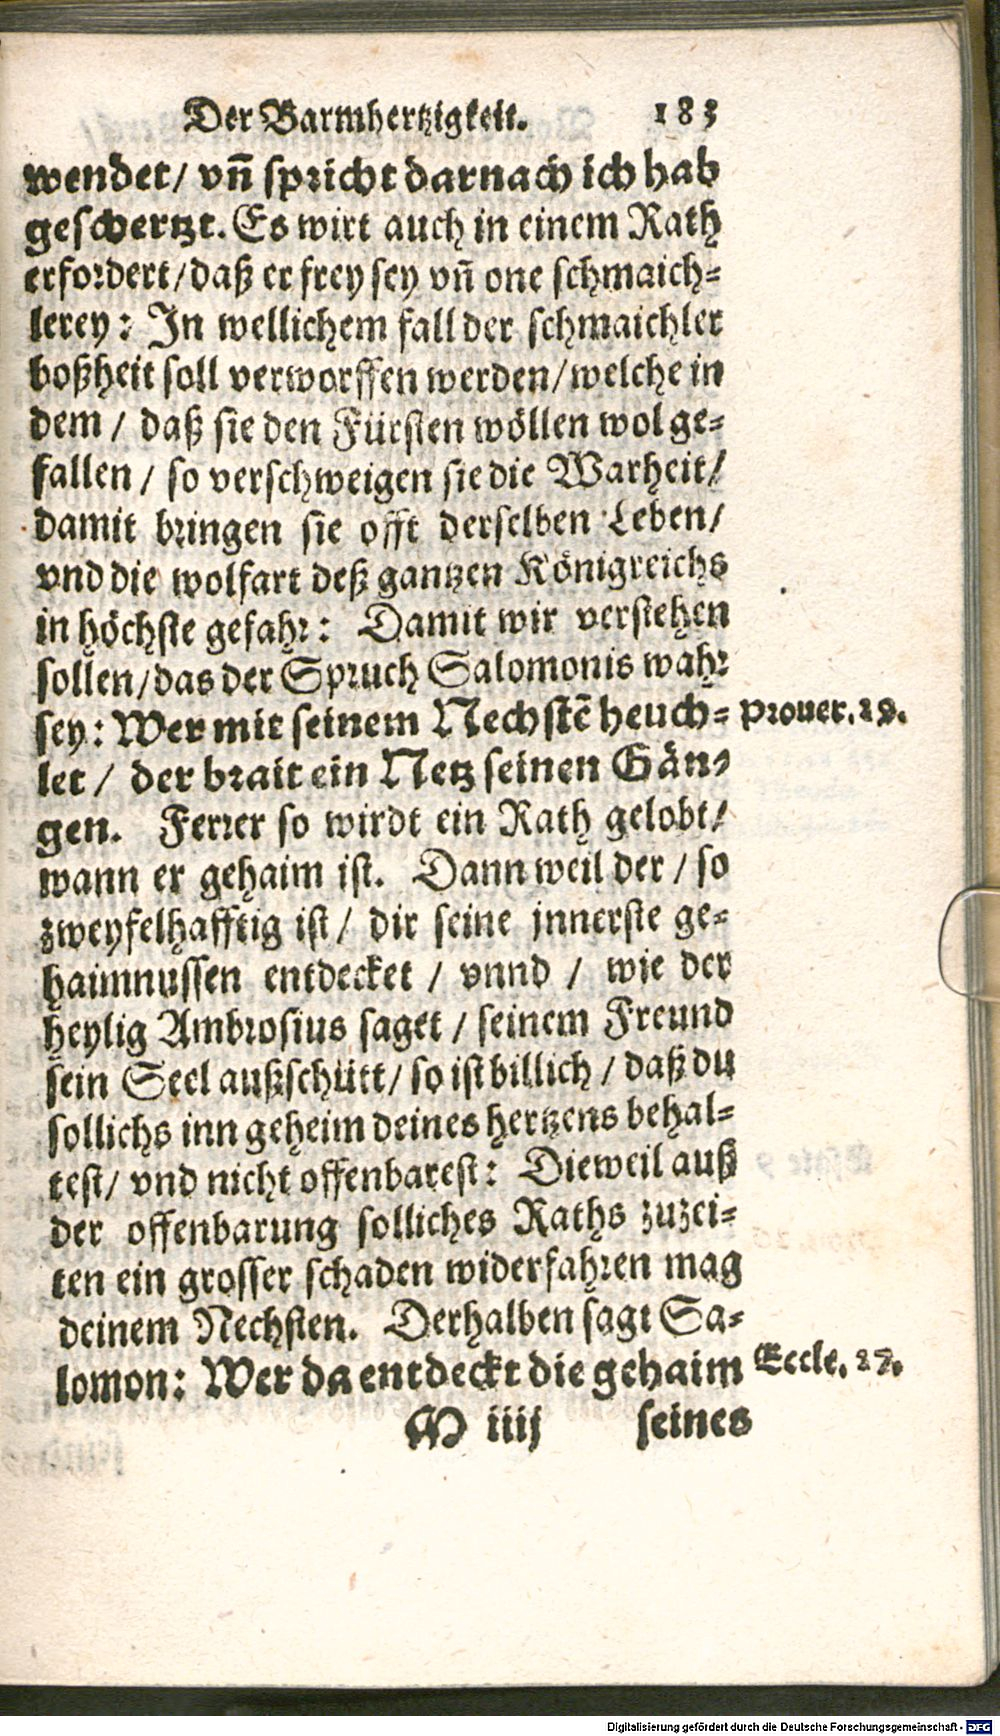 Der Barmhertzigkeit. 183
wendet/ vñ spricht darnach ich hab
geschertzt. Es wirt auch in einem Rath
erfordert/daß er frey sey vñ one schmaich-
lerey: In wellichem fall der schmaichler
boßheit soll verworffen werden/welche in
dem / daß sie den Fürsten wöllen wol ge-
fallen / so verschweigen sie die Warheit/
damit bringen sie offt derselben Leben/
vnd die wolfart deß gantzen Königreichs
in höchste gefahr: Damit wir verstehen
sollen/das der Spruch Salomonis wahr
sey: Wer mit seinem Nechstē heuch- Prouer. 29.
let / der brait ein Netz seinen Gän-
gen. Ferrer so wirdt ein Rath gelobt/
wann er gehaim ist. Dann weil der / so
zweyfelhafftig ist / dir seine jnnerste ge-
haimnussen entdecket / vnnd / wie der
heylig Ambrosius saget / seinem Freund
sein Seel außschütt/ so ist billich / daß du
sollichs inn geheim deines hertzens behal-
test/ vnd nicht offenbarest: Dieweil auß
der offenbarung solliches Raths zuzei-
ten ein grosser schaden widerfahren mag
deinem Nechsten. Derhalben sagt Sa-
lomon: Wer da entdeckt die gehaim Eccle. 27.
M iiij seines
Digitalisierung gefördert durch die Deutsche Forschungsgemeinschaft - DFG